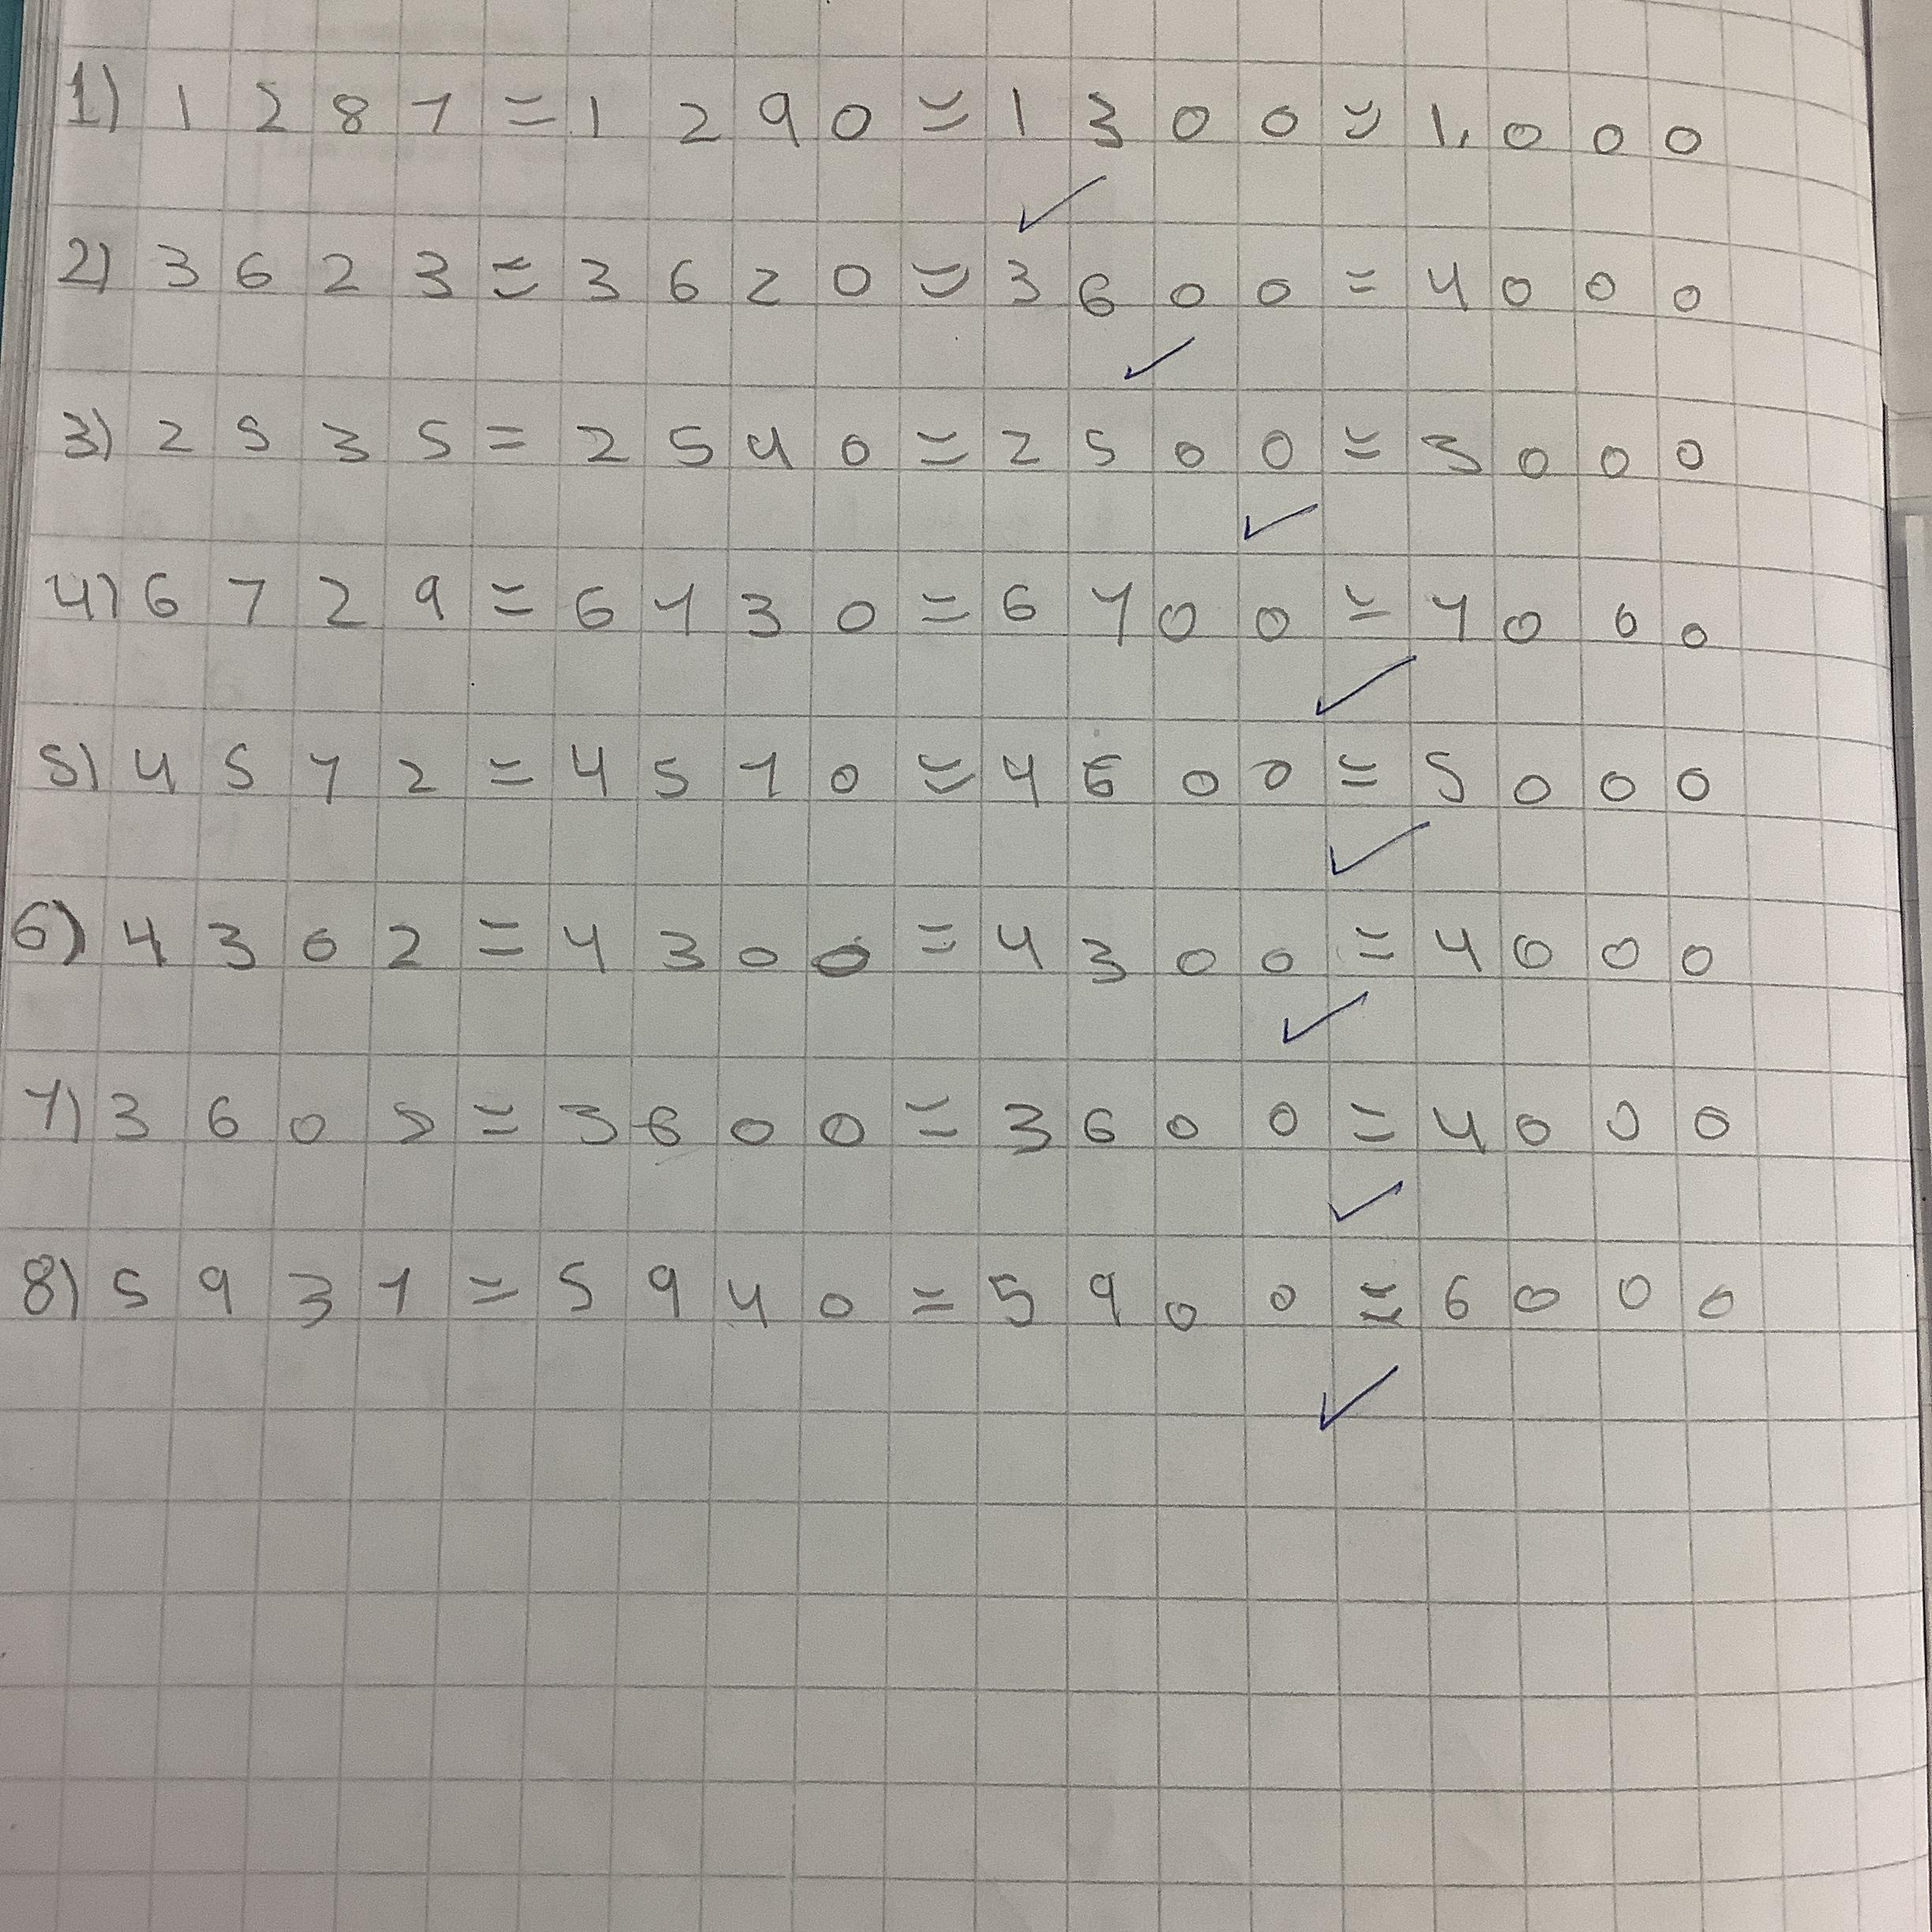 1) 1287 ≈ 1290 ≈ 1300 ≈ 1,000
2) 3623 ≈ 3620 ≈ 3600 = 4000
3) 2535 = 2540 ≈ 2500 ≈ 3000
4) 6729 ≈ 6730 ≈ 6700 ≈ 7000
5) 4572 ≈ 4570 ≈ 4600 ≈ 5000
6) 4302 ≈ 4300 ≈ 4300 ≈ 4000
7) 3602 ≈ 3600 ≈ 3600 ≈ 4000
8) 5937 ≈ 5940 ≈ 5900 ≈ 6000